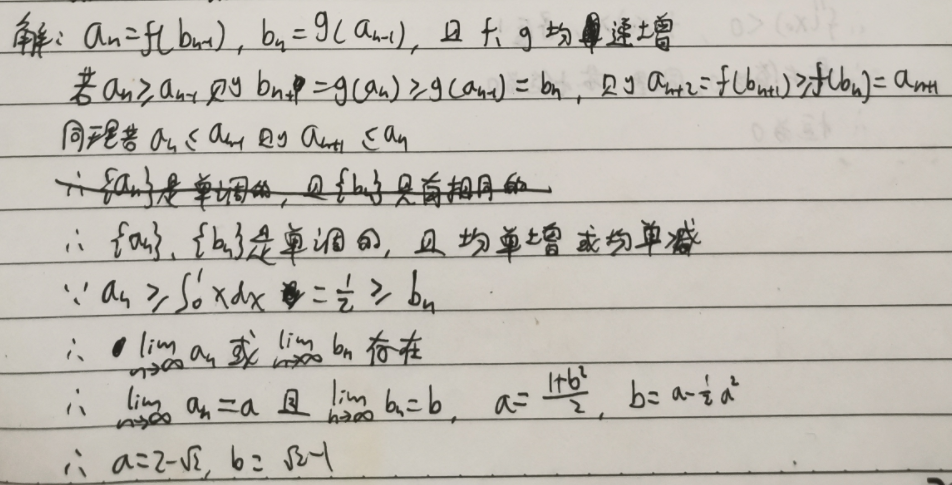 解: aₙ=f(bₙ₋₁), bₙ=g(aₙ₋₁), 且 f、g 均单递增
若 aₙ≥aₙ₋₁ 则 bₙ₊₁=g(aₙ)≥g(aₙ₋₁)=bₙ, 则 aₙ₊₂=f(bₙ₊₁)≥f(bₙ)=aₙ₊₁
同理若 aₙ≤aₙ₋₁ 则 aₙ₊₁≤aₙ
∴ {aₙ}是单调的, 且{bₙ}具有相同的
∴ {aₙ}、{bₙ}是单调的, 且均单增或均单减
∵ aₙ≥∫₀¹xdx=1/2≥bₙ
∴ lim n→∞ aₙ 或 lim n→∞ bₙ 存在
∴ lim n→∞ aₙ=a 且 lim n→∞ bₙ=b, a=(1+b²)/2, b=a-½a²
∴ a=2-√2, b=√2-1